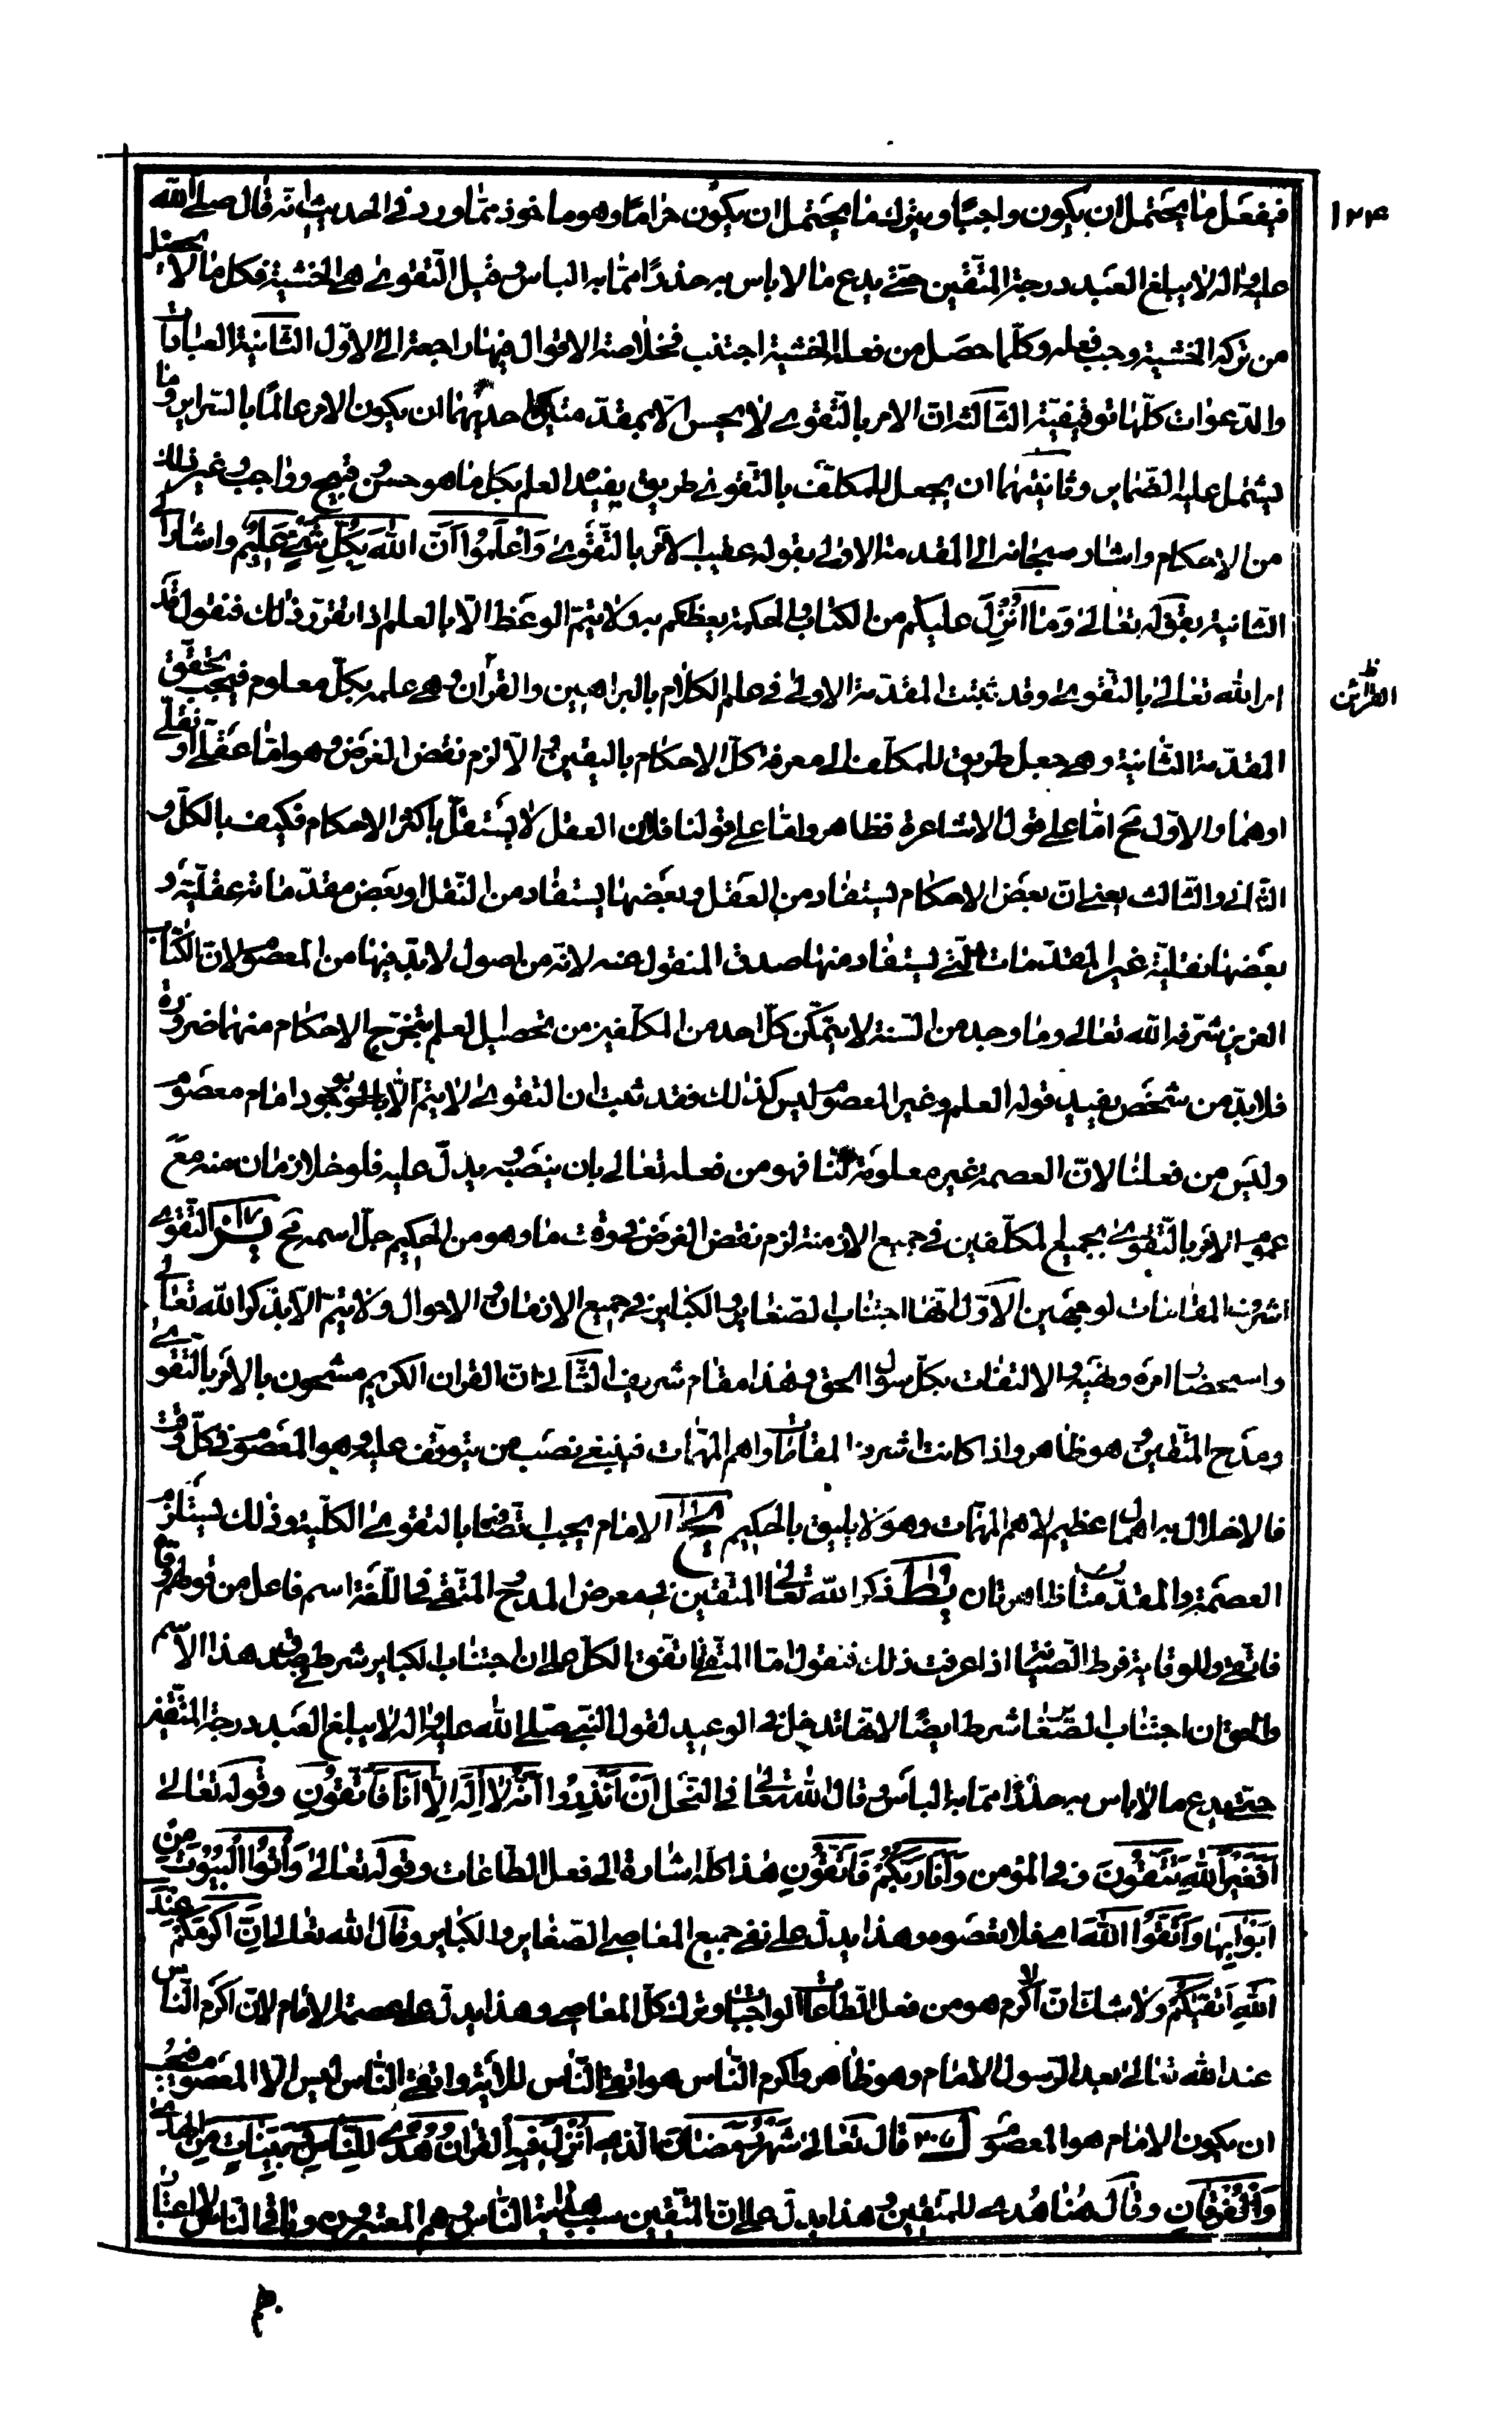 ١٢٤
فيفعل ما يحتمل ان يكون واجبا ويترك ما يحتمل ان يكون حراما وهو ماخوذ مما ورد في الحديث انه قال صلى الله
عليه واله لا يبلغ العبد درجة المتقين حتى يدع ما لا باس به حذرا مما به الباس وقيل التقوى هي الخشية فكل ما لا يحصل
من تركه الخشية وجب فعله وكلما حصل من فعله الخشية اجتنب فخلاصة الاقوال فيها راجعة الى الاول الثانية العبادات
والدعوات كلها توقيفية الثالثة ان الامر بالتقوى لا يحسن الا بمقدمتين احديهما ان يكون الامر عالما بالسراير وما
يشتمل عليه الضماير وثانيتهما ان يجعل للمكلف بالتقوى طريق يفيد العلم بكل ما هو حسن وقبيح وواجب وغير ذلك
من الاحكام واشار سبحانه الى المقدمة الاولى بقوله عقيب الامر بالتقوى وَاعْلَمُوا أَنَّ اللهَ بِكُلِّ شَيْءٍ عَلِيمٌ واشار الى
الثانية بقوله تعالى وَمَا أُنْزِلَ عليكم من الكتاب والحكمة يعظكم به ولا يتم الوعظ الا بالعلم اذا تقرر ذلك فنقول قد
امر الله تعالى بالتقوى وقد ثبتت المقدمة الاولى في علم الكلام بالبراهين والقرآن وهي علمه بكل معلوم فيجب تحقق
المقدمة الثانية وهي جعل طريق للمكلف الى معرفة كل الاحكام باليقين والا لزم نقض الغرض وهو اما عقلي او نقلي
او هما والاول مح اما على قول الاشاعرة فظاهر واما على قولنا فلان العقل لا يستقل باكثر الاحكام فكيف بالكل و
الثاني والثالث يعني ان بعض الاحكام يستفاد من العقل وبعضها يستفاد من النقل او بعض مقدماته عقلية و
بعضها نقلية غير المقدمات التي يستفاد منها صدق المنقول عنه لانه من اصول لا بد فيها من المعصوم لان الكتاب
العزيز شرفه الله تعالى وما وجد من السنة لا يتمكن كل احد من المكلفين من تحصيل العلم بتخرج الاحكام منها ضرورة
فلا بد من شخص يفيد قوله العلم وغير المعصوم ليس كذلك فقد ثبت ان التقوى لا يتم الا بوجود امام معصوم
وليس من فعلنا لان العصمة غير معلومة لنا فهو من فعله تعالى بان ينصبه ويدل عليه فلو خلا زمان منه مع
عموم الامر بالتقوى بجميع المكلفين في جميع الازمنة لزم نقض الغرض في وقت ما وهو من الحكيم جل اسمه مح التقوى
اشرف المقامات لوجهين الاول انها اجتناب الصغاير والكباير في جميع الازمان والاحوال ولا يتم الا بذكر الله تعالى
واستحضار امره ونهيه والالتفات بكل سوى الحق وهذا مقام شريف الثاني ان القران الكريم مشحون بالامر بالتقوى
ومدح المتقين وهو ظاهر واذا كانت اشرف المقامات واهم المهمات فينبغي نصب من يتوقف عليه وهو المعصوم في كل وقت
فالاخلال به اهمال عظيم لاهم المهمات وهو لا يليق بالحكيم الامام يجب اتصافه بالتقوى الكلية وذلك يستلزم
العصمة والمقدمتان ظاهرتان ذكر الله تعالى المتقين في معرض المدح والمتقي في اللغة اسم فاعل من قولهم وقاه
فاتقى والوقاية فرط الصيانة اذا عرفت ذلك فنقول اما المتقي اتفق الكل على ان اجتناب الكباير شرط في صدق هذا الاسم
والحق ان اجتناب الصغاير شرط ايضا لانها تدخل في الوعيد لقول النبي صلى الله عليه واله لا يبلغ العبد درجة المتقين
حتى يدع ما لا باس به حذرا مما به الباس وقال الله تعالى في النحل أَنْ أَنْذِرُوا أَنَّهُ لَا إِلَهَ إِلَّا أَنَا فَاتَّقُونِ وقوله تعالى
أَفَغَيْرَ اللهِ تَتَّقُونَ وفي المؤمن وَأَنَا رَبُّكُمْ فَاتَّقُونِ هذا كله اشارة الى فعل الطاعات وقوله تعالى وَأْتُوا الْبُيُوتَ مِنْ
أَبْوَابِهَا وَاتَّقُوا اللهَ اي فلا تعصوه وهذا يدل على نفي جميع المعاصي الصغاير والكباير وقال الله تعالى إِنَّ أَكْرَمَكُمْ عِنْدَ
اللهِ أَتْقَيكُمْ ولا شك ان الاكرم هو من فعل الطاعات الواجبات وترك كل المعاصي وهذا يدل على عصمة الامام لان اكرم الناس
عند الله تعالى بعد الرسول الامام وهو ظاهر واكرم الناس هو اتقى الناس للاية واتقى الناس ليس الا المعصوم فيجب
ان يكون الامام هو المعصوم قال تعالى شَهْرُ رَمَضَانَ الَّذِي أُنْزِلَ فِيهِ الْقُرْآنُ هُدًى لِلنَّاسِ وَبَيِّنَاتٍ مِنَ الْهُدَى
وَالْفُرْقَانِ وقال هنا هُدى للمتقين وهذا يدل على ان المتقين هم الناس وهم المعتبرون وباقي الناس لا اعتبار